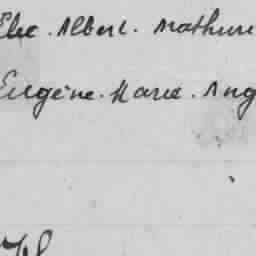 Elie. Albert. Mathuri
Eugène. Marie. Aug